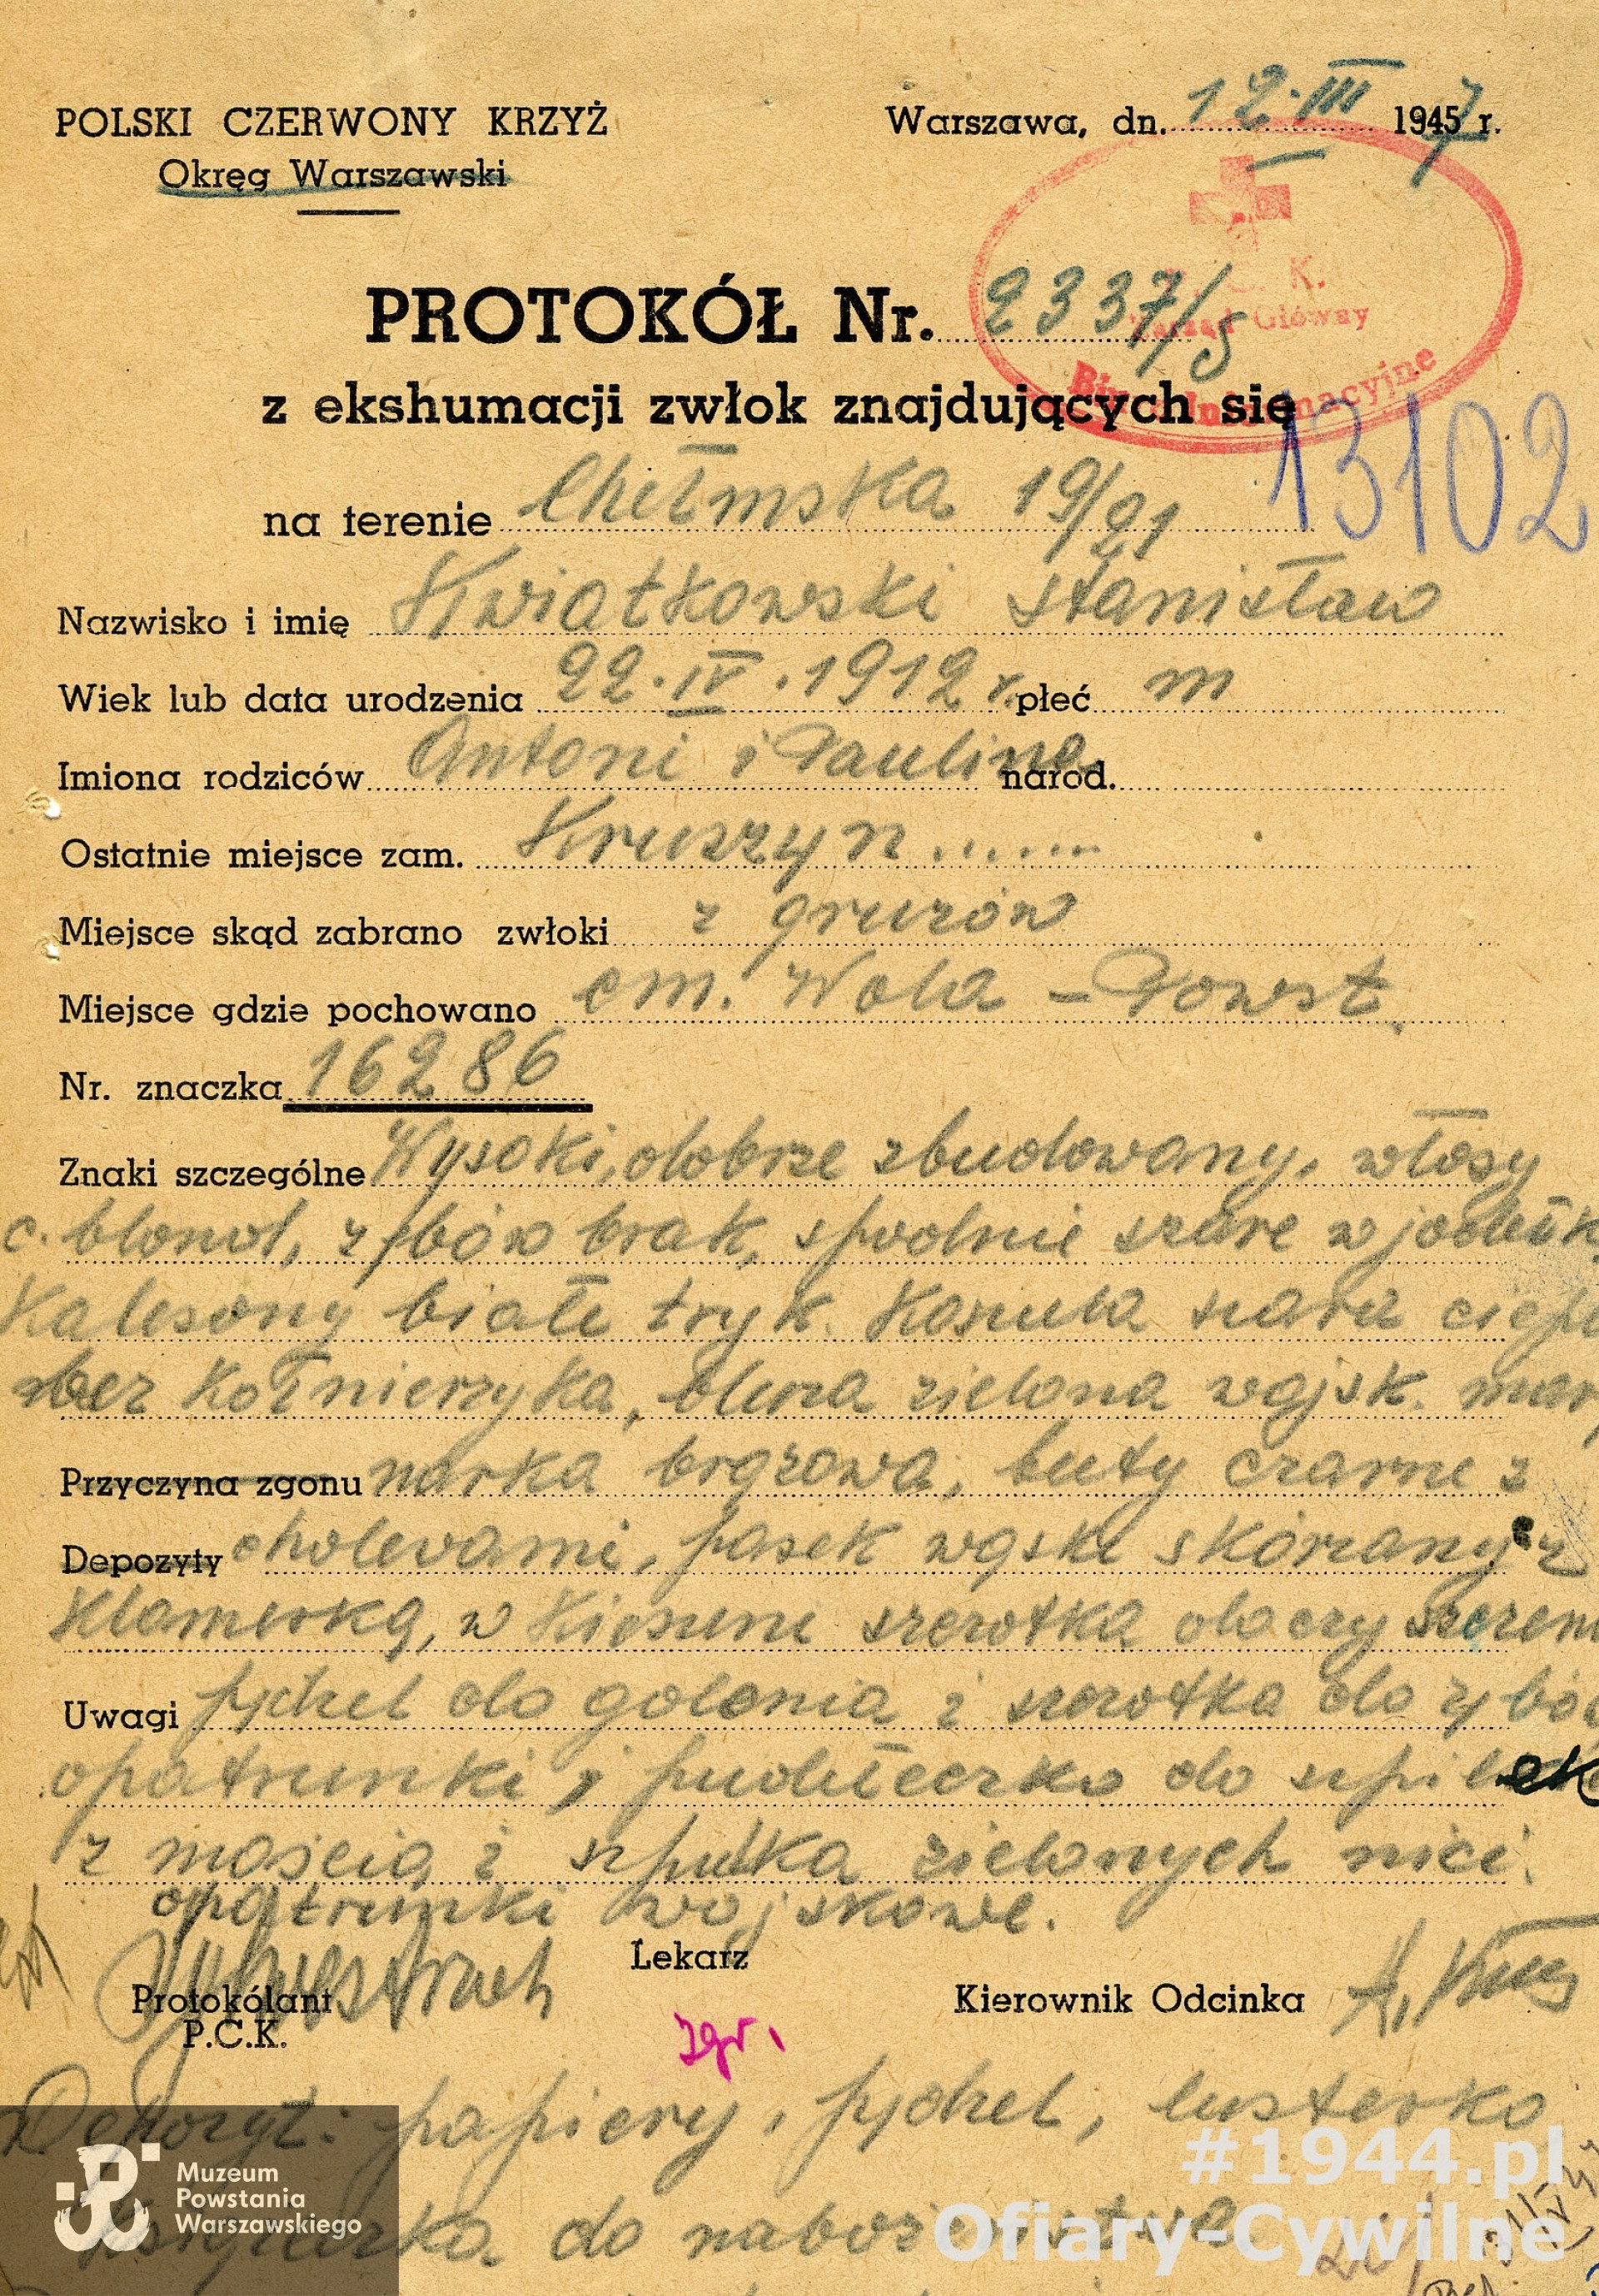 POLSKI CZERWONY KRZYŻ
Okręg Warszawski
Warszawa, dn. 12. III 1947 r.
K.
Zarząd Główny
PROTOKÓŁ Nr. 2337/5
z ekshumacji zwłok znajdujących się
13102
na terenie Chełmska 19/21
Nazwisko i imię Kwiatkowski Stanisław
Wiek lub data urodzenia 22. IV. 1912 r. płeć m
Imiona rodziców Antoni i Paulina narod.
Ostatnie miejsce zam. Kruszyn ......
Miejsce skąd zabrano zwłoki z gruzów
Miejsce gdzie pochowano cm. Wola – Powst.
Nr. znaczka 16286
Znaki szczególne Wysoki, dobrze zbudowany, włosy
c. blond, zębów brak, spodnie szare w jodełk
Kalesony białe tryk. Koszula szara ciepł
bez kołnierzyka, bluza zielona wojsk. mary
Przyczyna zgonu narka brązowa, buty czarne z
Depozyty cholewami, pasek wąski skórzany z
klamerką, w kieszeni szczotka do czyszczeni
Uwagi pędzel do golenia i szczotka do zębó
opatrunki, pudełeczko do szpilek
z maścią i szpulka zielonych nici.
opatrunki wojskowe.
Lekarz
Protokólant
P.C.K.
Kierownik Odcinka
zgr.
Depozyt: papiery, pędzel, lusterko
książeczka do nabożeństwa
Muzeum
Powstania
Warszawskiego
#1944.pl
Ofiary-Cywilne